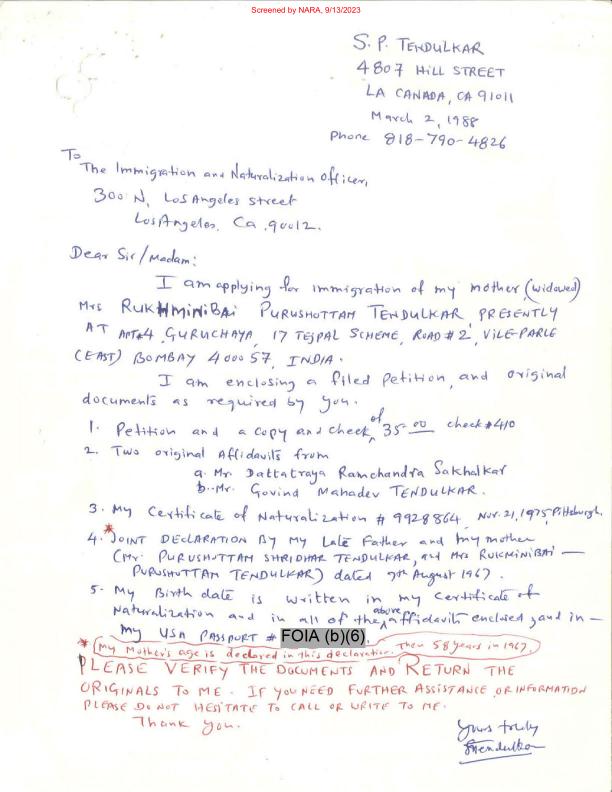 Screened by NARA, 9/13/2023
S. P. TENDULKAR
4807 HILL STREET
LA CANADA, CA 91011
March 2, 1988
Phone 818-790-4826
To
The Immigration and Naturalization Officer,
300 N. Los Angeles Street
Los Angeles, Ca. 90012.
Dear Sir/Madam:
I am applying for immigration of my mother (widowed)
Mrs RUKHMINIBAI PURUSHOTTAM TENDULKAR PRESENTLY
AT APT#4, GURUCHAYA, 17 TEJPAL SCHEME, ROAD #2, VILE-PARLE
(EAST) BOMBAY 400057, INDIA.
I am enclosing a filed petition, and original
documents as required by you.
1. Petition and a copy and check of 35.00 check #410
2. Two original Affidavits from
a. Mr. Dattatraya Ramchandra Sakhalkar
b. Mr. Govind Mahadev TENDULKAR.
3. My Certificate of Naturalization # 9928864, Nov. 21, 1975, Pittsburgh.
4.* JOINT DECLARATION By My Late Father and my mother
(Mr. PURUSHOTTAM SHRIDHAR TENDULKAR, and Mrs RUKMINIBAI —
PURUSHOTTAM TENDULKAR) dated 9th August 1967.
5. My Birth date is written in my Certificate of
Naturalization and in all of the above affidavits enclosed, and in —
my USA PASSPORT # FOIA (b)(6).
* My Mother's age is declared in this declaration. Then 58 years in 1967.
PLEASE VERIFY THE DOCUMENTS AND RETURN THE
ORIGINALS TO ME. IF YOU NEED FURTHER ASSISTANCE OR INFORMATION
PLEASE DO NOT HESITATE TO CALL OR WRITE TO ME.
Thank you.
Yours truly
STendulkar